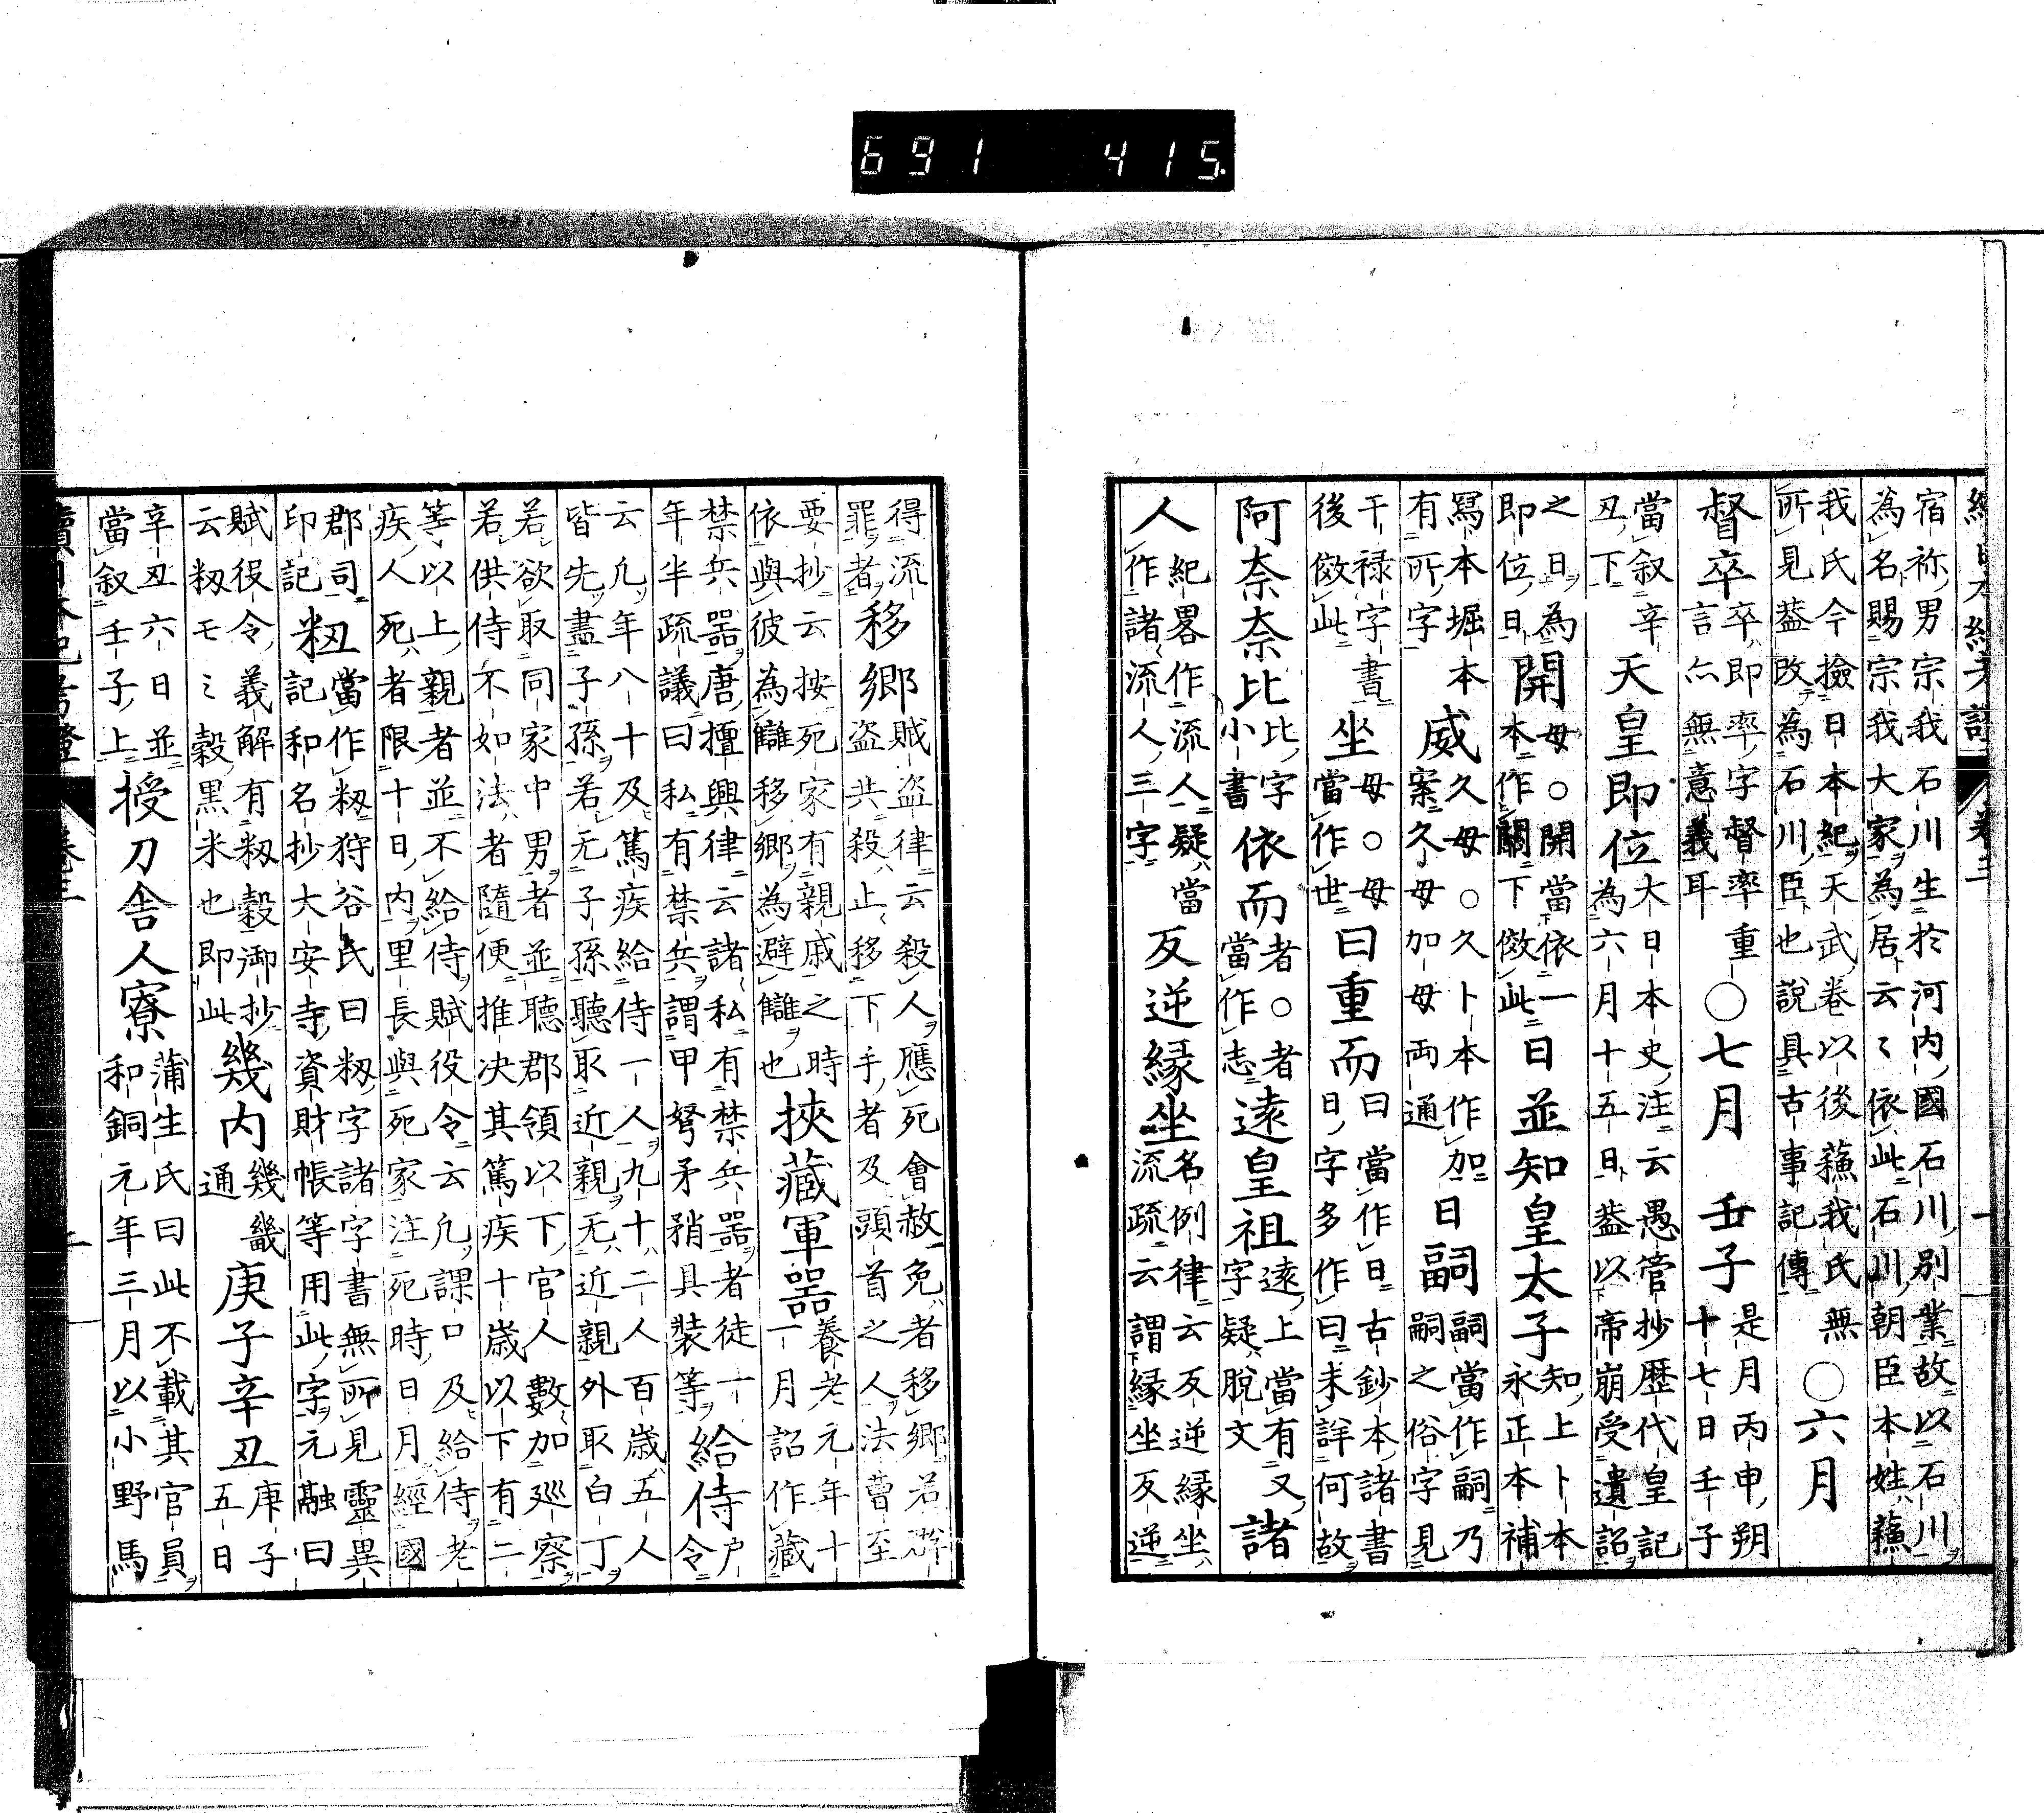 691 415
宿祢男宗我石川生於河内國石川別業故以石川
為名賜宗我大家為居云〻依此石川朝臣本姓蘓
我氏今撿日本紀天武卷以後蘓我氏無
所見盖改為石川臣也説具古事記傳
○六月
督卒
卒即率字督率重
言亦無意義耳
○七月 壬子
是月丙申朔
十七日壬子
當叙辛
丑下
天皇即位
大日本史注云愚管抄歴代皇記
為六月十五日盖以帝崩受遺詔
之日為
即位日
開
毋○開當依一
本作關下倣此
日並知皇太子
知上卜本
永正本補
冩本堀本
有所字
威
久毋○久卜本作加
案久毋加毋両通
日嗣
嗣當作嗣乃
嗣之俗字見
干禄字書
後倣此
坐
毋○毋
當作世
曰重而
曰當作日古鈔本諸書
日字多作曰未詳何故
阿奈奈比
比字
小書
依而
者○者
當作志
遠皇祖
遠上當有又
字疑脱文
諸
人
紀畧作流人疑當
作諸流人三字
反逆縁坐
名例律云反逆縁坐
流疏云謂縁坐反逆
得流
罪者
移郷
賊盗律云殺人應死會赦免者移郷若
盗共殺止移下手者及頭首之人法曹至
要抄云按死家有親戚之時
依與彼為讎移郷為避讎也
挾藏軍器
養老元年十
一月詔作藏
禁兵器唐擅興律云諸私有禁兵器者徒一
年半疏議曰私有禁兵謂甲弩矛矟具装等
給侍
戸
令
云凡年八十及篤疾給侍一人九十二人百歳五人
皆先盡子孫若无子孫聽取近親无近親外取白丁
若欲取同家中男者並聽郡領以下官人數加巡察
若供侍不如法者隨便推决其篤疾十歳以下有二
等以上親者並不給侍賦役令云凡課口及給侍老
疾人死者限十日内里長與死家注死時日月經國
郡司
印記
籾
當作籾狩谷氏曰籾字諸字書無所見靈異
記和名抄大安寺資財帳等用此字元融曰
賦役令義解有籾穀御抄
云籾モミ穀黒米也即此
幾内
幾畿
通
庚子辛丑
庚子
五日
辛丑六日並
當叙壬子上
授刀舎人寮
蒲生氏曰此不載其官員
和銅元年三月以小野馬